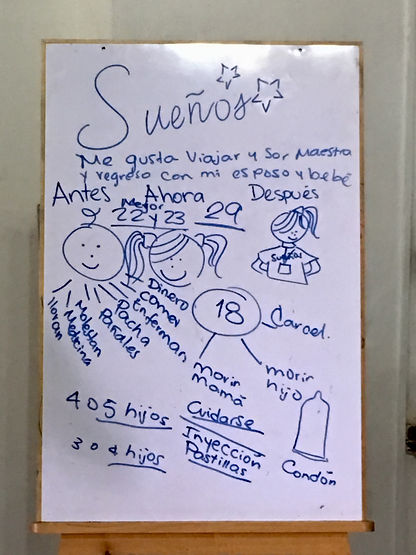 Sueños
Me gusta Viajar y Ser Maestra
y regreso con mi esposo y bebé
Antes Ahora Después
22 Mejor y 23 29
Sueños
Dinero
Comer
Enferman
Pacha
Pañales
Molestan
Medicina
lloran
18
Cárcel.
morir mamá
morir hijo
4 o 5 hijos
3 o 4 hijos
Cuidarse
Inyección
Pastillas
Condón